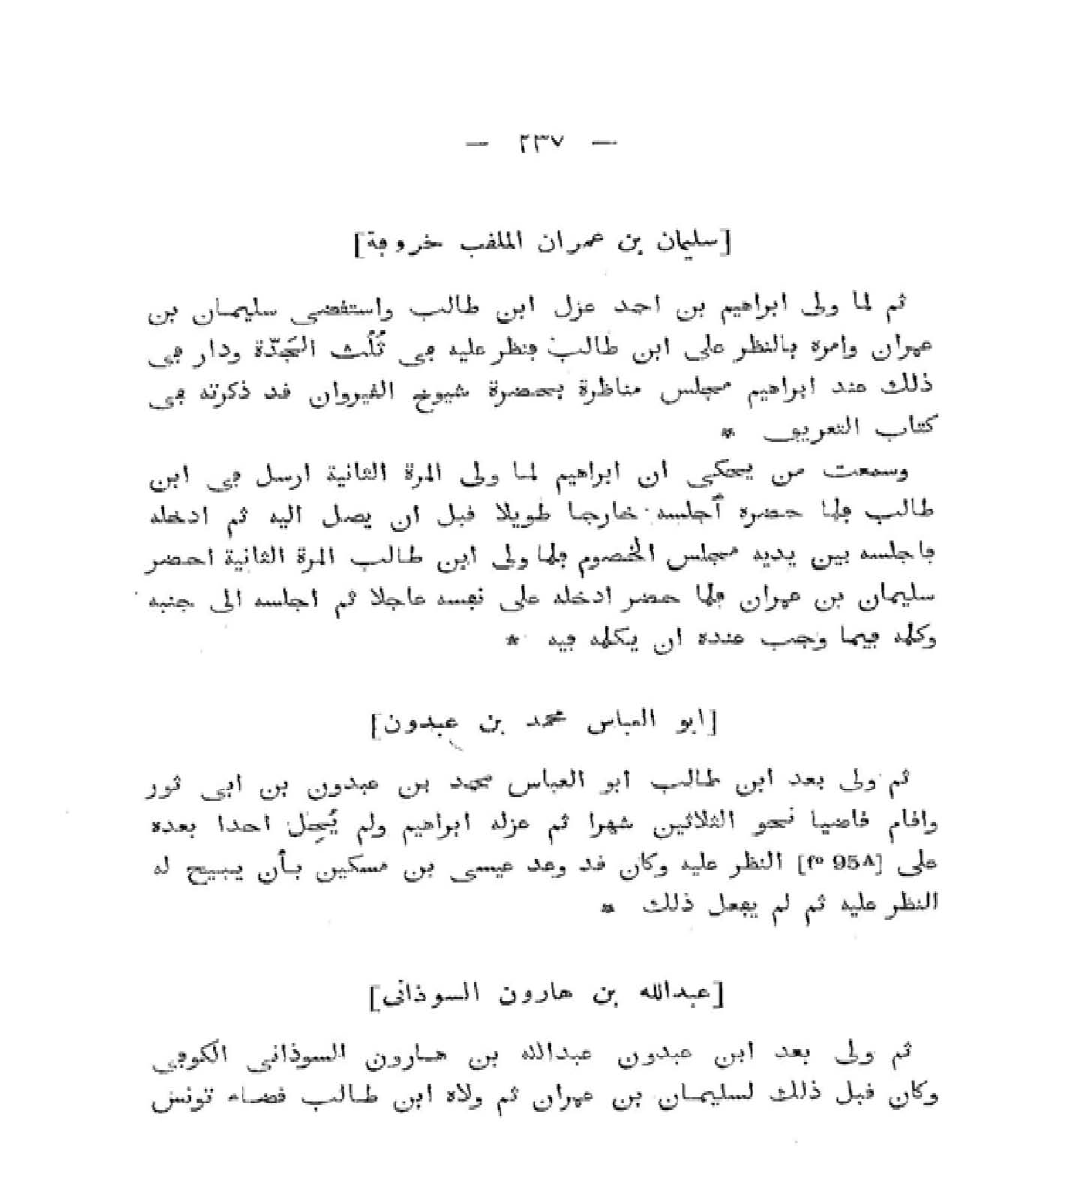 — ٢٣٧ —
[سليمان بن عمران الملقب خروفة]
ثم لما ولى ابراهيم بن احمد عزل ابن طالب واستقضى سليمان بن
عمران وامره بالنظر على ابن طالب فنظر عليه فى ثُلُث الجَدّة ودار فى
ذلك عند ابراهيم مجلس مناظرة بحضرة شيوخ القيروان قد ذكرته فى
كتاب التعريف *
وسمعت من يحكى ان ابراهيم لما ولى المرة الثانية ارسل فى ابن
طالب فلما حضره أجلسه خارجا طويلا قبل ان يصل اليه ثم ادخله
فاجلسه بين يديه مجلس الخصوم فلما ولى ابن طالب المرة الثانية احضر
سليمان بن عمران فلما حضر ادخله على نفسه عاجلا ثم اجلسه الى جنبه
وكلمه فيما وجب عنده ان يكلمه فيه *
[ابو العباس محمد بن عبدون]
ثم ولى بعد ابن طالب ابو العباس محمد بن عبدون بن ابى ثور
واقام قاضيا نحو الثلاثين شهرا ثم عزله ابراهيم ولم يُجِل احدا بعده
على [fº 95A] النظر عليه وكان قد وعد عيسى بن مسكين بأن يبيح له
النظر عليه ثم لم يفعل ذلك *
[عبدالله بن هارون السوذانى]
ثم ولى بعد ابن عبدون عبدالله بن هارون السوذانى الكوفى
وكان قبل ذلك لسليمان بن عمران ثم ولاه ابن طالب قضاء تونس